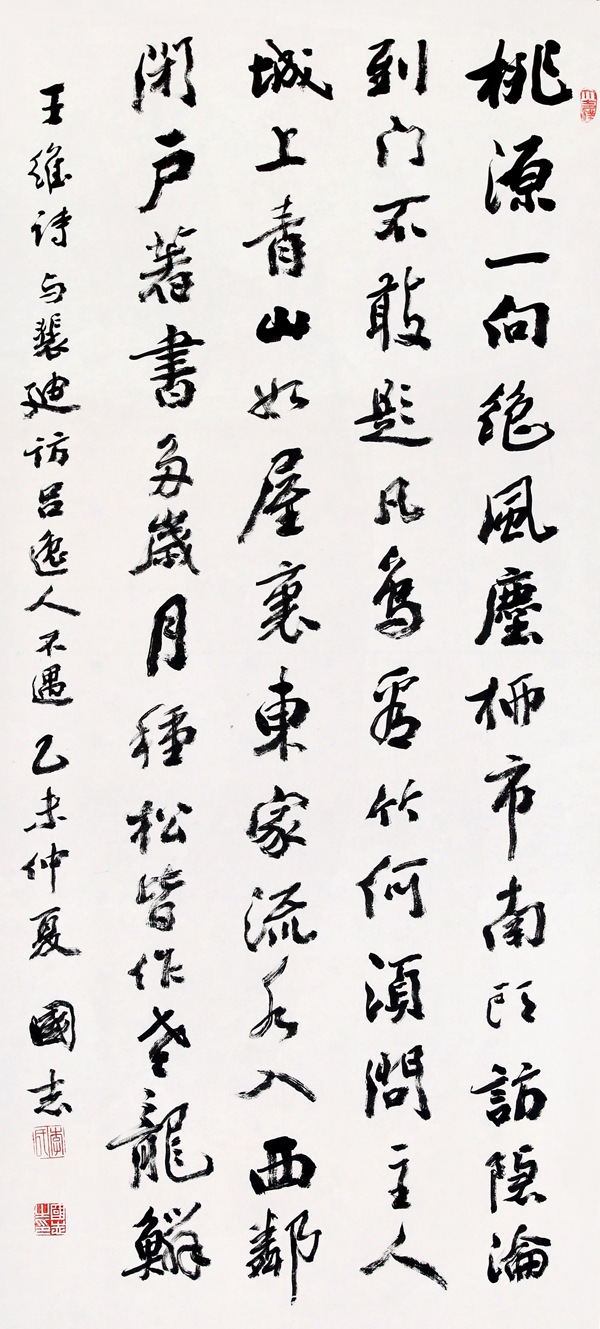 桃源一向絕風塵柳市南頭訪隱淪
到門不敢題凡鳥看竹何須問主人
城上青山如屋裏東家流水入西鄰
閉户著書多歲月種松皆作老龍鱗
王維詩与裴迪訪吕逸人不遇 乙未仲夏 國志